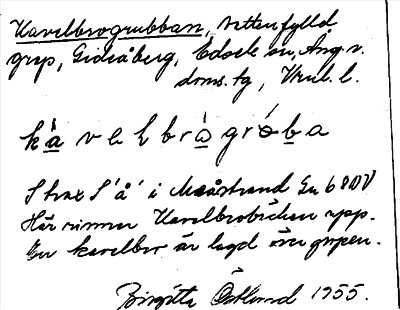 Kavelbrogrubban, vattenfylld
grop, Gideåberg, Edsele sn, Ång. v.
doms. tg, Vnl. l.
kàvelbrògróba
Strax S 'å' i Måstrand Eu 68 DV
Här rinner Kavelbrobäcken upp.
En kavelbro är lagd över gropen.
Birgitta Östlund 1955.